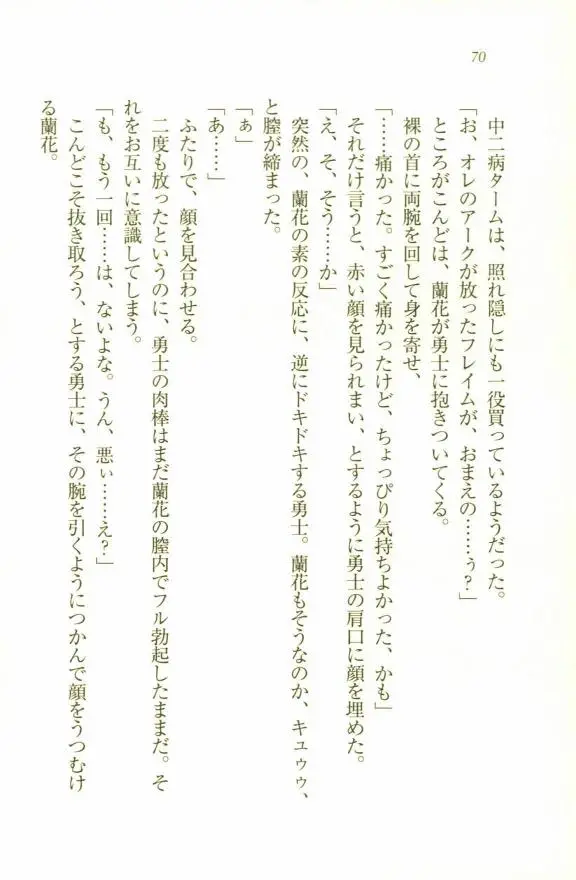 70
中二病タームは、照れ隠しにも一役買っているようだった。
「お、オレのアークが放ったフレイムが、おまえの……ぅ?」
ところがこんどは、蘭花が勇士に抱きついてくる。
裸の首に両腕を回して身を寄せ、
「……痛かった。すごく痛かったけど、ちょっぴり気持ちよかった、かも」
それだけ言うと、赤い顔を見られまい、とするように勇士の肩口に顔を埋めた。
「え、そ、そう……か」
突然の、蘭花の素の反応に、逆にドキドキする勇士。蘭花もそうなのか、キュゥゥ、
と膣が締まった。
「ぁ」
「あ……」
ふたりで、顔を見合わせる。
二度も放ったというのに、勇士の肉棒はまだ蘭花の膣内でフル勃起したままだ。そ
れをお互いに意識してしまう。
「も、もう一回……は、ないよな。うん、悪ぃ……え?」
こんどこそ抜き取ろう、とする勇士に、その腕を引くようにつかんで顔をうつむけ
る蘭花。